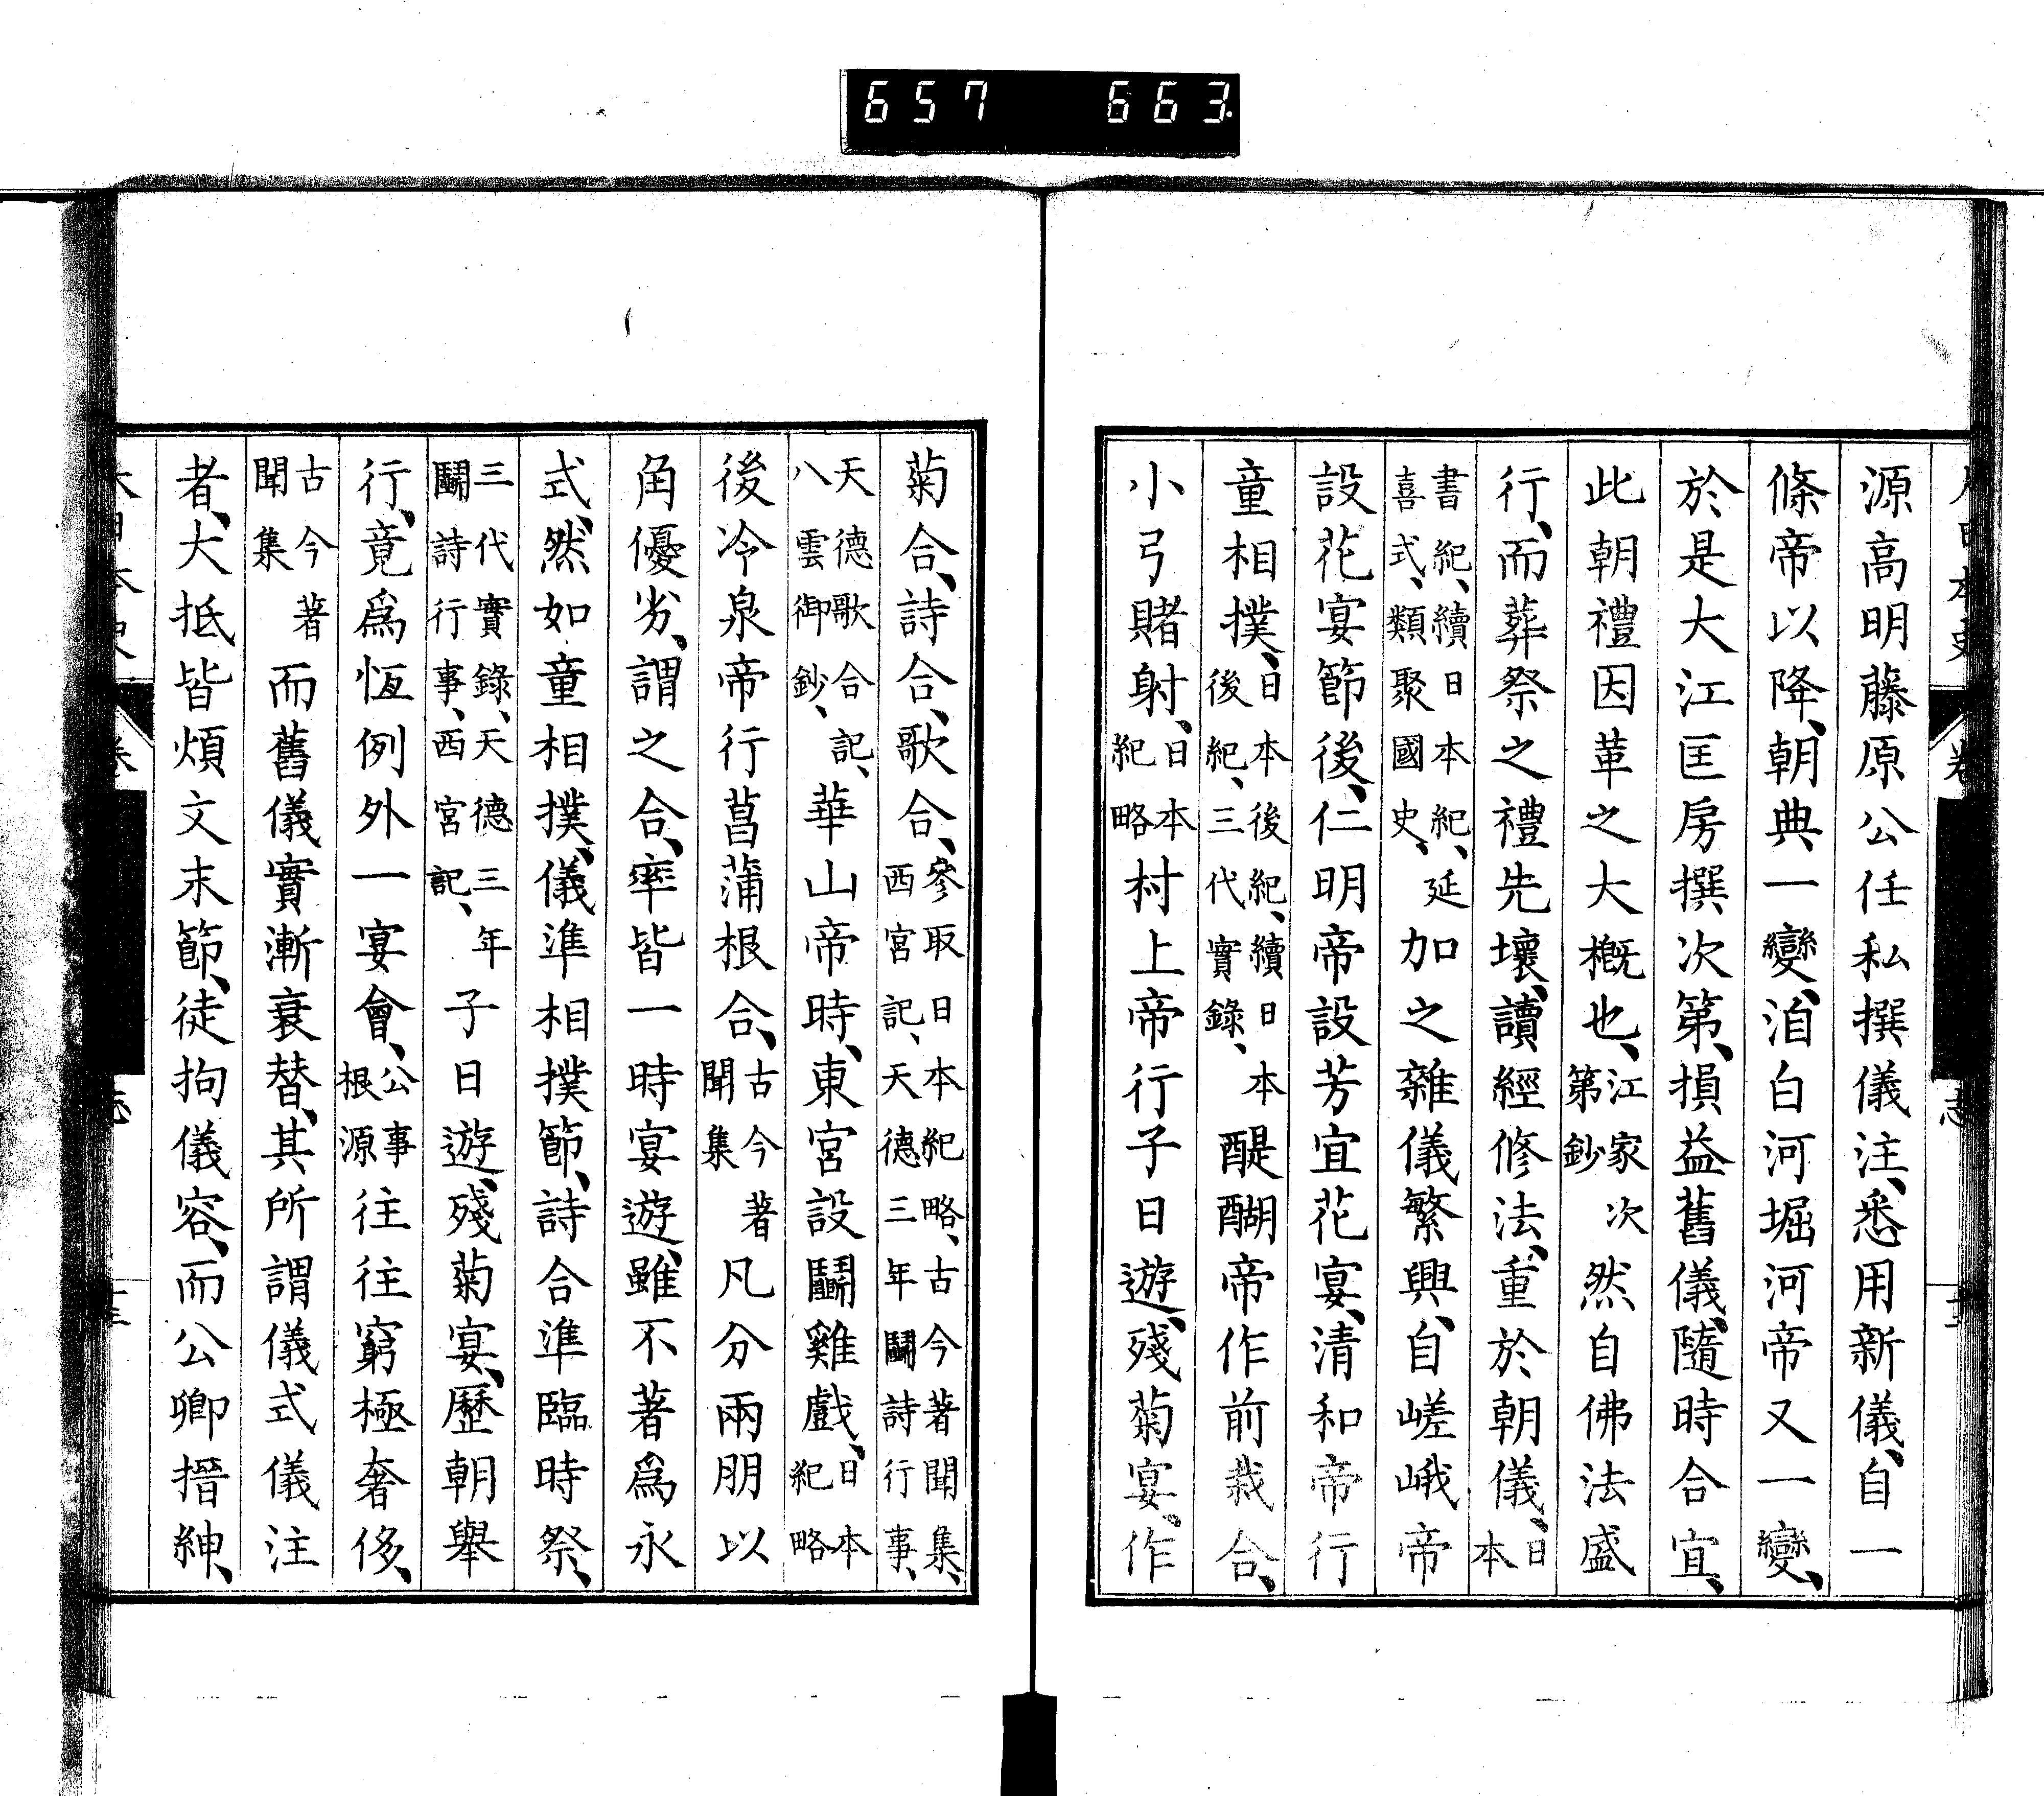 657 663
源高明藤原公任私撰儀注、悉用新儀、自一
條帝以降、朝典一變、洎白河堀河帝又一變、
於是大江匡房撰次第、損益舊儀、隨時合宜、
此朝禮因革之大概也、江家次第鈔然自佛法盛
行、而葬祭之禮先壞、讀經修法、重於朝儀、日本
書紀、續日本紀、延喜式、類聚國史、加之雜儀繁興、自嵯峨帝
設花宴節後、仁明帝設芳宜花宴、清和帝行
童相撲、日本後紀、續日本後紀、三代實錄、醍醐帝作前栽合、
小弓賭射、日本紀略村上帝行子日遊、殘菊宴、作
菊合、詩合、歌合、參取日本紀略、古今著聞集、西宮記、天德三年鬪詩行事、
天德歌合記、八雲御鈔、華山帝時、東宮設鬪雞戲、日本紀略
後冷泉帝行菖蒲根合、古今著聞集凡分兩朋以
角優劣、謂之合、率皆一時宴遊、雖不著爲永
式、然如童相撲、儀準相撲節、詩合準臨時祭、
三代實錄、天德三年鬪詩行事、西宮記、子日遊、殘菊宴、歷朝舉
行、竟爲恆例外一宴會、公事根源往往窮極奢侈、
古今著聞集而舊儀實漸衰替、其所謂儀式儀注
者、大抵皆煩文末節、徒拘儀容、而公卿搢紳、